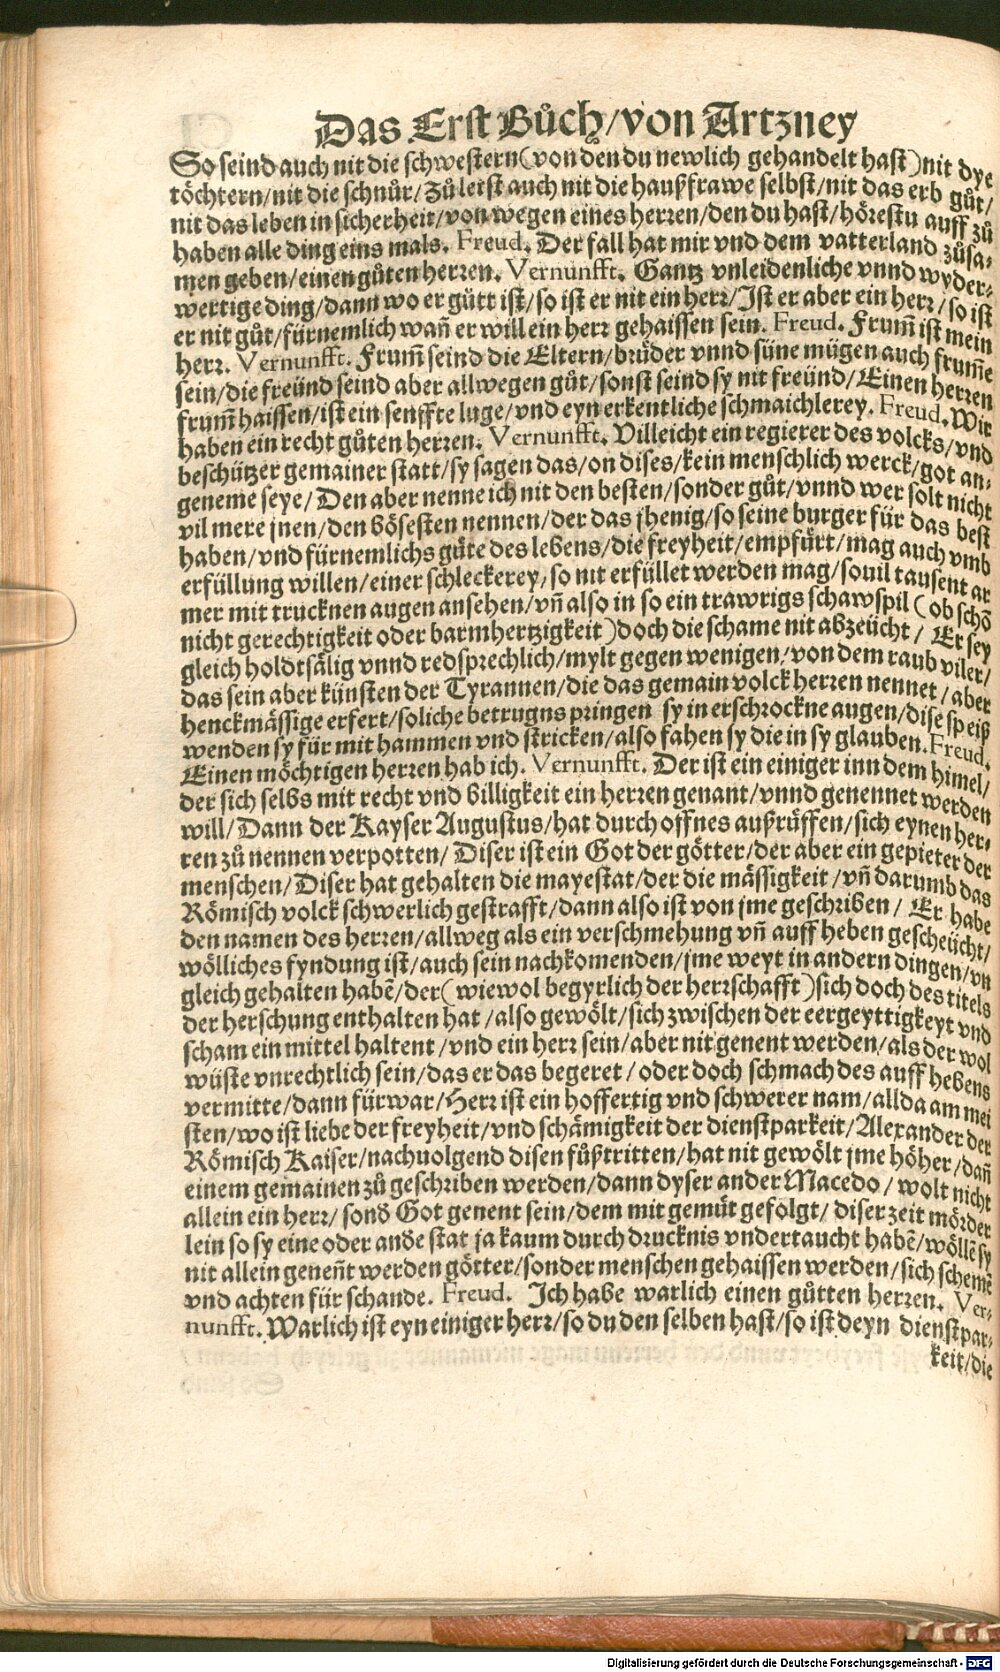 Das Erst Bůch/von Artzney
So seind auch nit die schwestern(von den du newlich gehandelt hast)nit dye
töchtern/nit die schnůr/Zů letst auch nit die haußfrawe selbst/nit das erb gůt/
nit das leben in sicherheit/von wegen eines herren/den du hast/hörestu auff zů
haben alle ding eins mals. Freud. Der fall hat mir vnd dem vatterland zůsa-
men geben/einen gůten herren. Vernunfft. Gantz vnleidenliche vnnd wyder-
wertige ding/dann wo er gůtt ist/so ist er nit ein herr/Ist er aber ein herr/so ist
er nit gůt/fürnemlich wañ er will ein herr gehaissen sein. Freud. Frum̃ ist mein
herr. Vernunfft. Frum̃ seind die Eltern/brüder vnnd süne mügen auch frum̃e
sein/die freünd seind aber allwegen gůt/sonst seind sy nit freünd/Einen herren
frum̃ haissen/ist ein senffte luge/vnd eyn erkentliche schmaichlerey. Freud. Wir
haben ein recht gůten herren. Vernunfft. Villeicht ein regierer des volcks/vnd
beschützer gemainer statt/sy sagen das/on dises/kein menschlich werck/got an-
geneme seye/Den aber nenne ich nit den besten/sonder gůt/vnnd wer solt nicht
vil mere jnen/den bösesten nennen/der das jhenig/so seine burger für das best
haben/vnd fürnemlichs gůte des lebens/die freyheit/empfürt/mag auch vmb
erfüllung willen/einer schleckerey/so nit erfüllet werden mag/souil tausent ar
mer mit trucknen augen ansehen/vñ also in so ein trawrigs schawspil(ob schõ
nicht gerechtigkeit oder barmhertzigkeit)doch die schame nit abzeücht/Er sey
gleich holdtsälig vnnd redsprechlich/mylt gegen wenigen/von dem raub viler/
das sein aber künsten der Tyrannen/die das gemain volck herren nennet/aber
henckmässige erfert/soliche betrugns pringen sy in erschrockne augen/dise speiß
wenden sy für mit hammen vnd stricken/also fahen sy die in sy glauben. Freud.
Einen möchtigen herren hab ich. Vernunfft. Der ist ein einiger inn dem himel/
der sich selbs mit recht vnd billigkeit ein herren genant/vnnd genennet werden
will/Dann der Kayser Augustus/hat durch offnes außrüffen/sich eynen her-
ren zů nennen verpotten/Diser ist ein Got der götter/der aber ein gepieter der
menschen/Diser hat gehalten die mayestat/der die mässigkeit/vñ darumb das
Römisch volck schwerlich gestrafft/dann also ist von jme geschriben/Er habe
den namen des herren/allweg als ein verschmehung vñ auff heben gescheücht/
wölliches fyndung ist/auch sein nachkomenden/jme weyt in andern dingen/vn
gleich gehalten habẽ/der(wiewol begyrlich der herrschafft)sich doch des titels
der herschung enthalten hat/also gewölt/sich zwischen der eergeyttigkeyt vnd
scham ein mittel haltent/vnd ein herr sein/aber nit genent werden/als der wol
wüste vnrechtlich sein/das er das begeret/oder doch schmach des auff hebens
vermitte/dann fürwar/Herr ist ein hoffertig vnd schwerer nam/allda am mei
sten/wo ist liebe der freyheit/vnd schämigkeit der dienstparkeit/Alexander der
Römisch Kaiser/nachuolgend disen fůßtritten/hat nit gewölt jme höher/dañ
einem gemainen zů geschriben werden/dann dyser ander Macedo/wolt nicht
allein ein herr/sonð Got genent sein/dem mit gemüt gefolgt/diser zeit mörder
lein so sy eine oder anðe stat ja kaum durch drucknis vndertaucht habẽ/wöllẽ sy
nit allein geneñt werden götter/sonder menschen gehaissen werden/sich schemẽ
vnd achten für schande. Freud. Ich habe warlich einen gůtten herren. Ver-
nunfft. Warlich ist eyn einiger herr/so du den selben hast/so ist deyn dienstpar-
keit/die
Digitalisierung gefördert durch die Deutsche Forschungsgemeinschaft - DFG